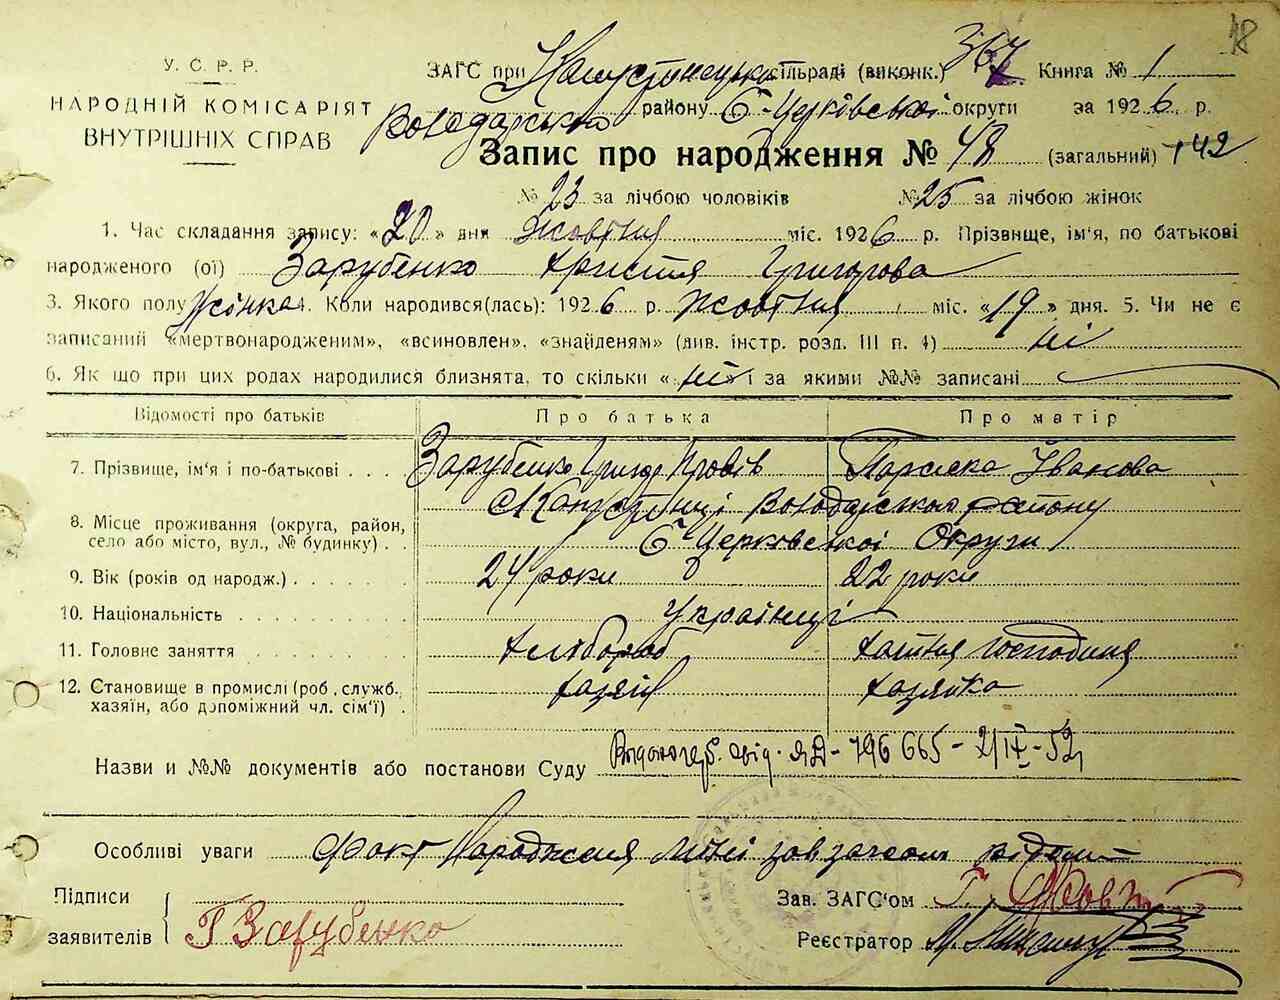 18
У. С. Р. Р.
НАРОДНІЙ КОМІСАРІЯТ
ВНУТРІШНІХ СПРАВ
ЗАГС при сільраді (виконк.) 367 Книга № 1
Володарського району Б-Церківської округи за 1926 р.
Запис про народження № 48 (загальний) 142
№ 23 за лічбою чоловіків № 25 за лічбою жінок
1. Час складання запису: «20» дня жовтня міс. 1926 р. Прізвище, ім'я, по батькові
народженого (ої) Зарубенко Христя Григорова
3. Якого полу жінка 4. Коли народився(лась): 1926 р. жовтня міс. «19» дня. 5. Чи не є
записаний «мертвонародженим», «всиновлен», «знайденям» (див. інстр. розд. III п. 4) ні
6. Як що при цих родах народилися близнята, то скільки «ні» і за якими №№ записані
Відомості про батьків Про батька Про матір
7. Прізвище, ім'я і по-батькові Зарубенко Григор Парасека Іванова
8. Місце проживання (округа, район, село або місто, вул., № будинку) Володарського району
Б-Церковської Округи
9. Вік (років од народж.) 24 роки 22 роки
10. Національність Українці
11. Головне заняття Хлібороб хатня господиня
12. Становище в промислі (роб., служб. хазяїн, або допоміжний чл. сім'ї) хазяїн хазяйка
Назви и №№ документів або постанови Суду свід. ЯД-796665-2/IX-52
Особливі уваги факт народження мені зав загсом відом
Підписи
заявителів Г Зарубенко
Зав. ЗАГС'ом
Реєстратор